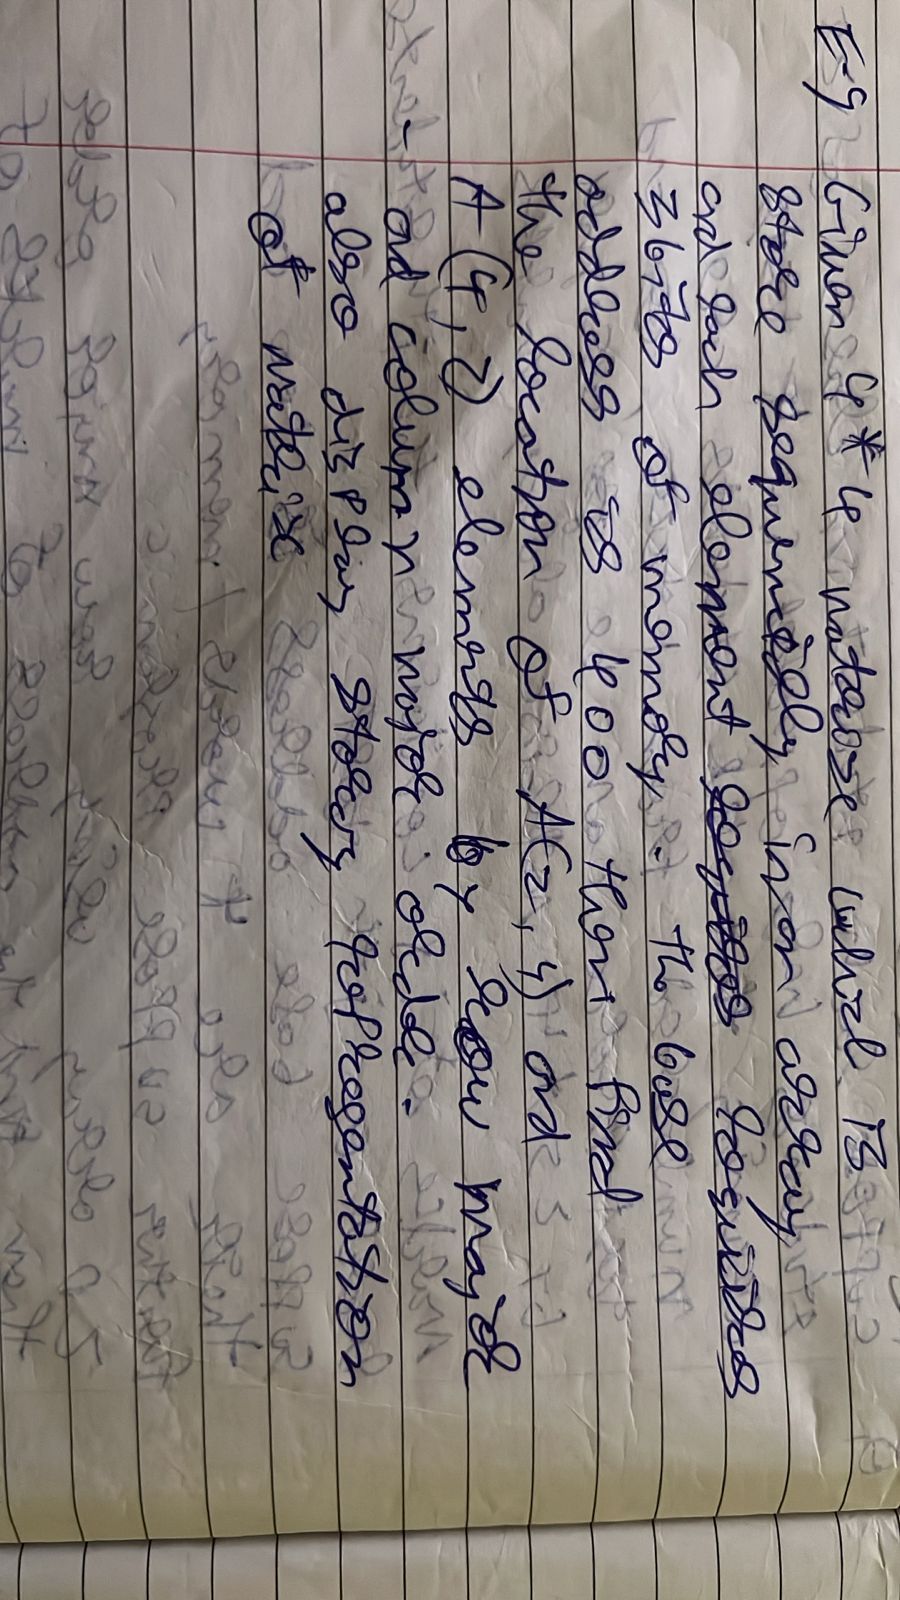 E-g Given 4*4 matrix which is
store sequentially in an array
and each element requires
3 bits of memory. the base
address is 400 then find
the location of A(2,4) and
A(4,2) elements by row major
and column major order.
also display storage representation
of matrix